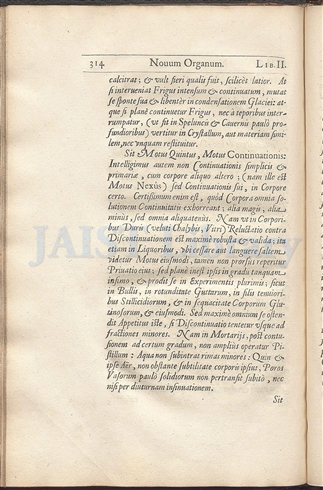 314 Nouum Organum. LIB.II.
calcitrat: & vult fieri qualis fuit, scilicèt latior. At
si interueniat Frigus intensum & continuatum, mutat
se sponte sua & libentèr in condensationem Glaciei: at-
que si planè continuetur Frigus, nec à teporibus inter-
rumpatur, (vt fit in Speluncis & Cauernis paulò pro-
fundioribus) vertitur in Crystallum, aut materiam simi-
lem, nec vnquam restituitur.
Sit Motus Quintus, Motus Continuationis:
Intelligimus autem non Continuationis simplicis &
primariæ, cum corpore aliquo altero; (nam ille est
Motus Nexûs) sed Continuationis suæ, in Corpore
certo. Certissimum enim est, quòd Corpora omnia so-
lutionem Continuitatis exhorreant; alia magis, alia
minùs, sed omnia aliquatenùs. Nam vt in Corpori-
bus Duris (veluti Chalybis, Vitri) Reluctatio contra
Discontinuationem est maximè robusta & valida: ita
etiam in Liquoribus, vbi cessare aut languere saltem
videtur Motus eiusmodi, tamen non prorsùs reperitur
Priuatio eius; sed planè inest ipsis in gradu tanquam
infimo, & prodit se in Experimentis plurimis; sicut
in Bullis, in rotunditate Guttarum, in filis tenuiori-
bus Stillicidiorum, & in sequacitate Corporum Glu-
tinosorum, & eiusmodi. Sed maximè omnium se osten-
dit Appetitus iste, si Discontinuatio tentetur vsque ad
fractiones minores. Nam in Mortarijs, post contu-
sionem ad certum gradum, non ampliùs operatur Pi-
stillum: Aqua non subintrat rimas minores: Quin &
ipse Aër, non obstante subtilitate corporis ipsius, Poros
Vasorum paulò solidiorum non pertransit subitò, nec
nisi per diuturnam insinuationem.
Sit